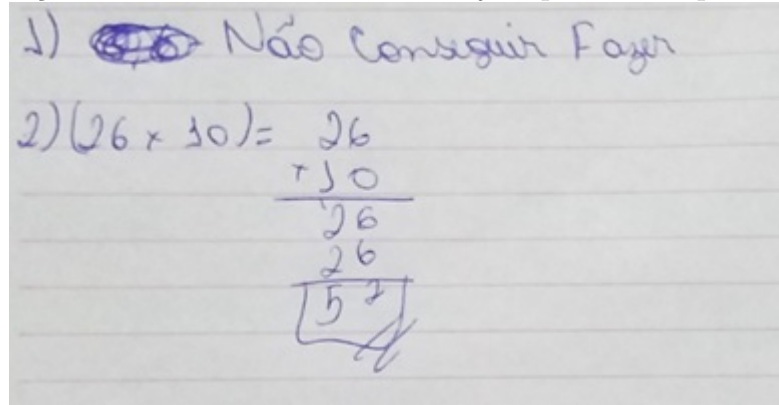 1) Não Conseguir Fazer
2) (26 x 10) = 26
x 10
26
26
52